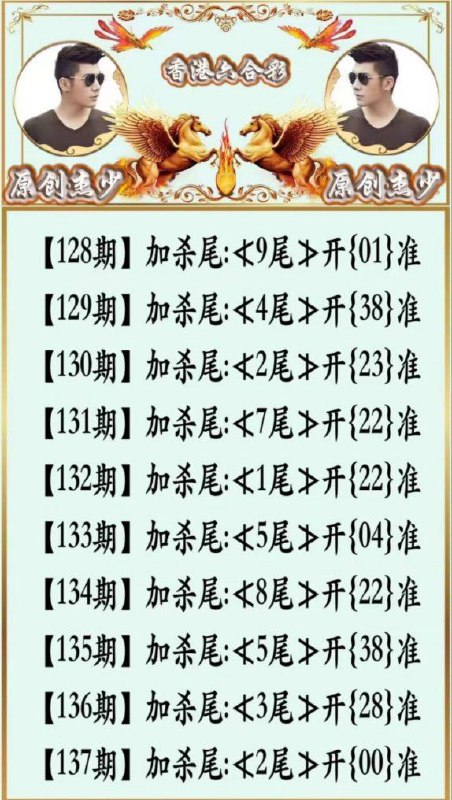 香港六合彩
原创圭少 原创圭少
【128期】加杀尾:≮9尾≯开{01}准
【129期】加杀尾:≮4尾≯开{38}准
【130期】加杀尾:≮2尾≯开{23}准
【131期】加杀尾:≮7尾≯开{22}准
【132期】加杀尾:≮1尾≯开{22}准
【133期】加杀尾:≮5尾≯开{04}准
【134期】加杀尾:≮8尾≯开{22}准
【135期】加杀尾:≮5尾≯开{38}准
【136期】加杀尾:≮3尾≯开{28}准
【137期】加杀尾:≮2尾≯开{00}准